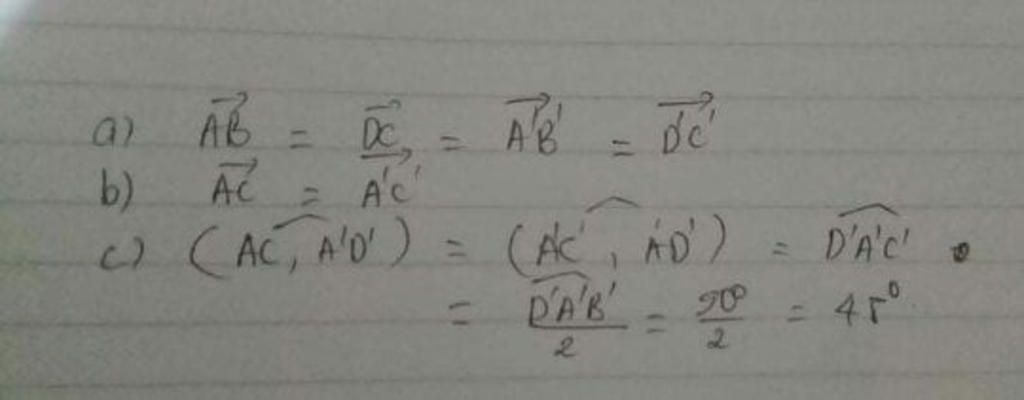 a) $\overrightarrow{AB} = \overrightarrow{DC} = \overrightarrow{A'B'} = \overrightarrow{D'C'}$
b) $\overrightarrow{AC} = \overrightarrow{A'C'}$
c) $(\widehat{AC, A'D'}) = (\widehat{A'C', A'D'}) = \widehat{D'A'C'}$
$= \frac{\widehat{D'A'B'}}{2} = \frac{90^0}{2} = 45^0$